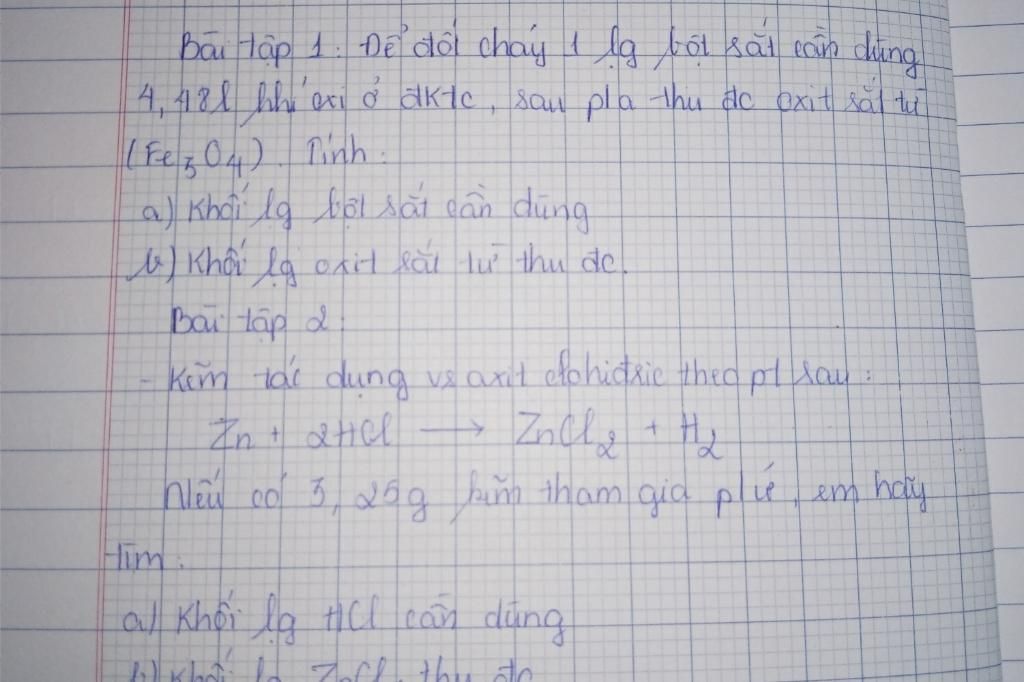 Bài tập 1: Để đốt cháy 1 lg bột sắt cần dùng
4,48l khí oxi ở đktc, sau pla thu đc oxit sắt từ
(Fe3O4). Tính:
a) Khối lg bột sắt cần dùng
b) Khối lg oxit sắt từ thu đc.
Bài tập 2:
- Kẽm tác dụng vs axit clohiđric theo pt sau:
Zn + 2HCl → ZnCl2 + H2
Nếu có 3,25g kẽm tham gia pứ, em hãy
tìm:
a) Khối lg HCl cần dùng
b) Khối lg ZnCl2 thu đc